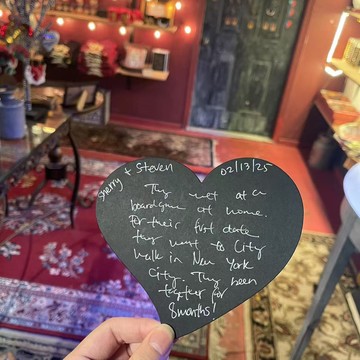 Sherry + Steven 02/13/25
They met at a
boardgame at home.
For their first date
they went to City
Walk in New York
City. They been
together for
8 months!